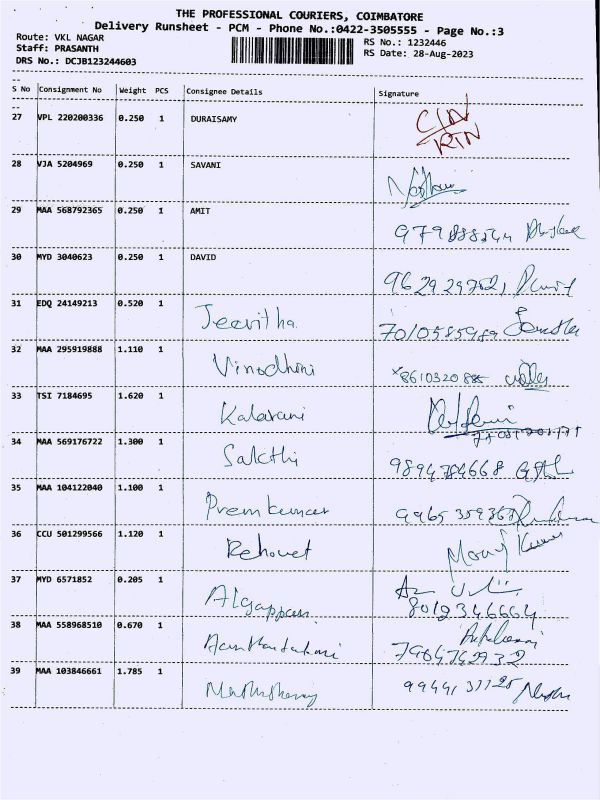 THE PROFESSIONAL COURIERS, COIMBATORE
Delivery Runsheet - PCM - Phone No.:0422-3505555 - Page No.:3
Route: VKL NAGAR
Staff: PRASANTH
DRS No.: DCJB123244603
RS No.: 1232446
RS Date: 28-Aug-2023
S No Consignment No Weight PCS Consignee Details Signature
27 VPL 220200336 0.250 1 DURAISAMY
28 VJA 5204969 0.250 1 SAVANI
29 MAA 568792365 0.250 1 AMIT
30 MYD 3040623 0.250 1 DAVID
31 EDQ 24149213 0.520 1 Jeevitha 7010585989
32 MAA 295919888 1.110 1 Vinodhini
33 TSI 7184695 1.620 1 Kalavani
34 MAA 569176722 1.300 1 Sakthi 9894784668
35 MAA 104122040 1.100 1 Premkumar
36 CCU 501299566 1.120 1 Rehovet
37 MYD 6571852 0.205 1 Algappan 8012346664
38 MAA 558968510 0.670 1
39 MAA 103846661 1.785 1